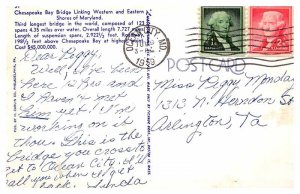 Chesapeake Bay Bridge Linking Western and Eastern
Shores of Maryland.
Third longest bridge in world, composed of 123
spans 4.35 miles over water. Overall length 7.727 miles.
Length of suspension spans, 2,922½ feet. Roadway
198½ feet above Chesapeake Bay at highest
Cost $45,000,000.
MD.
POST CARD
Dear Peggy,
Well, we've been
here is
& haven't
yet! I'm
working on it
tho. This is the
bridge you cross to
get to Ocean City. I'll
call you when I get
back. Linda
Miss Peggy Monday
1313 N. Herndon St
Arlington, Va